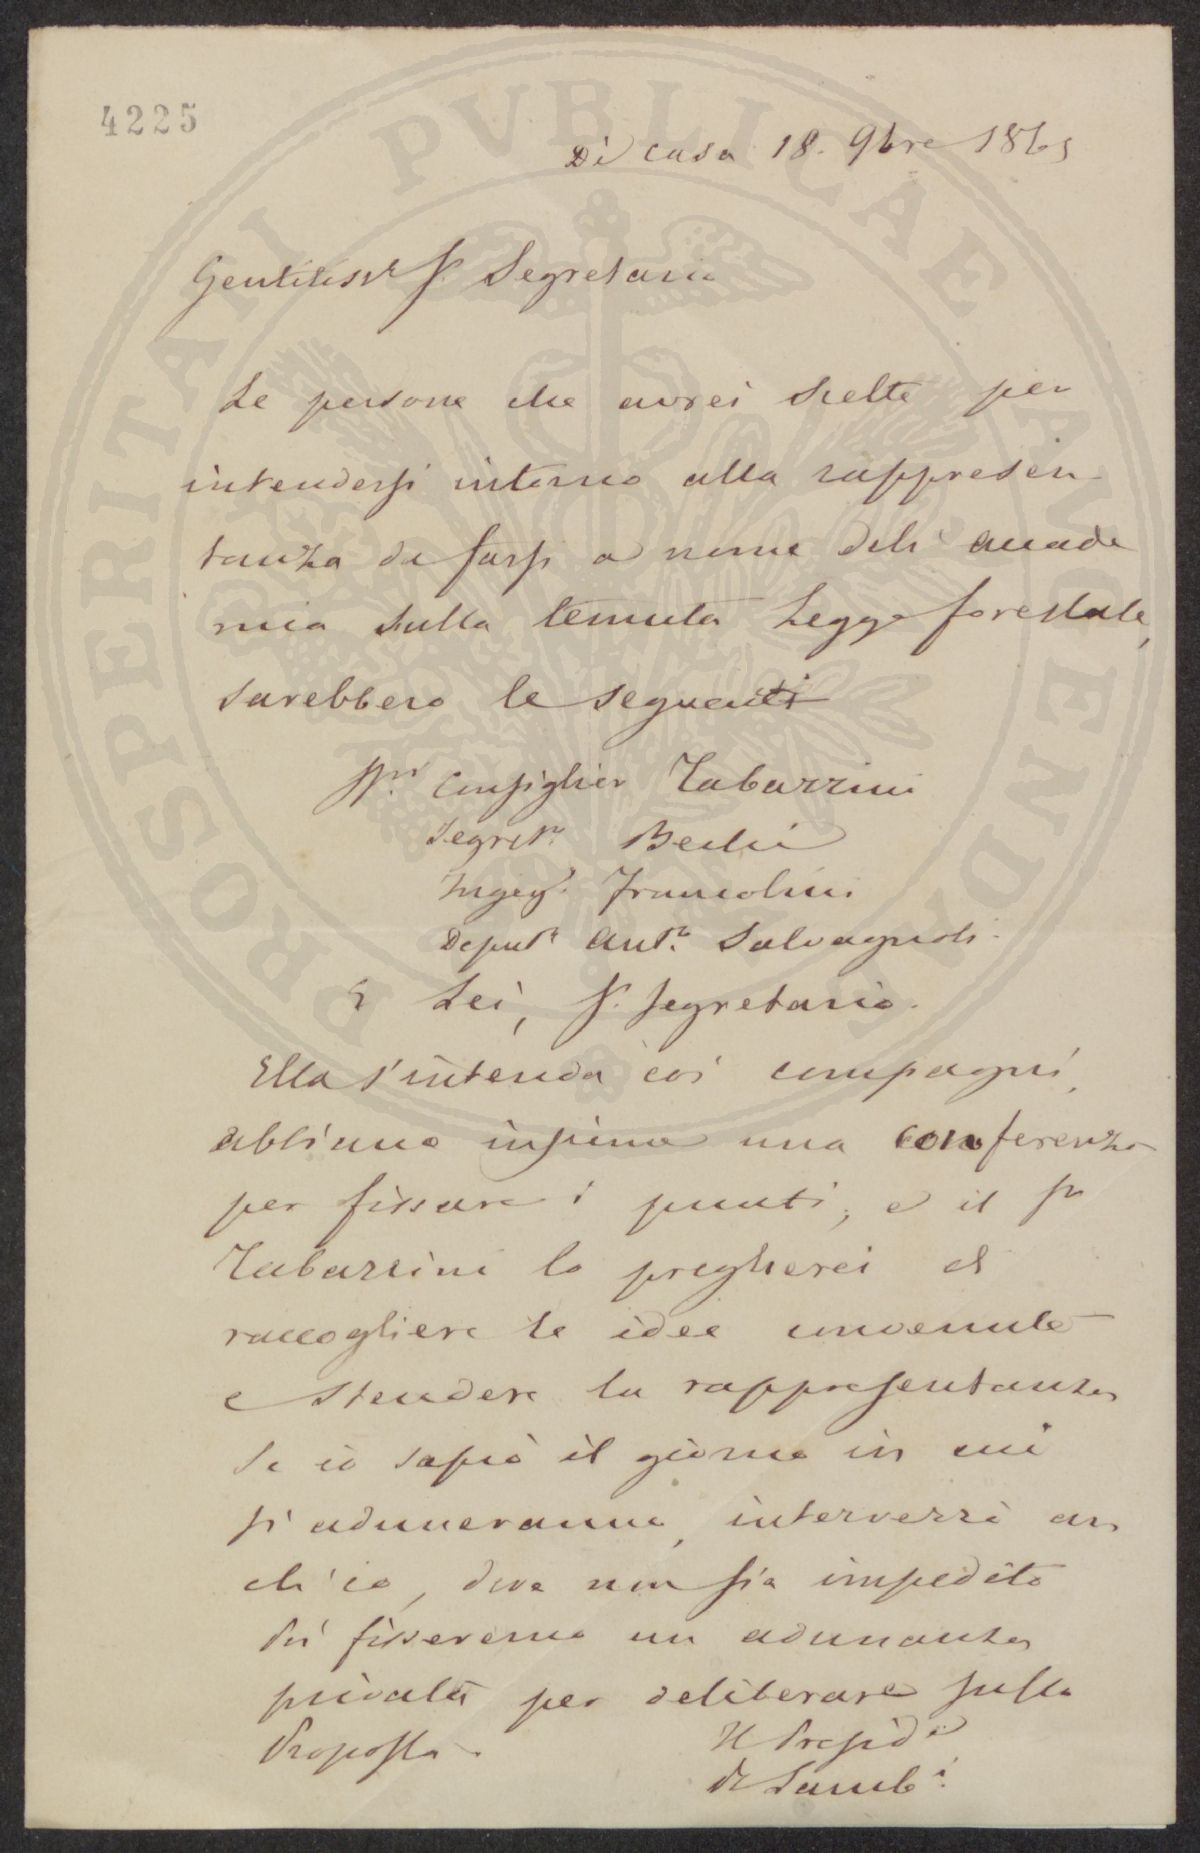 4225
Di casa 18. 9bre 1865
Gentiliss. Sr. Segretario
Le persone che avrei scelte per
intendersi intorno alla rappresen
tanza da farsi a nome dell' accade
mia sulla temuta Legge forestale,
sarebbero le seguenti
Sri. Consiglier Tabarrini
Segret. Bechi
Ingeg. Francolini
Deput. Ant. Salvagnoli.
E Lei, Sr. Segretario.
Ella s'intenda coi compagni,
abbiano insieme una conferenza
per fissare i punti; e il Sr
Tabarrini lo pregherei di
raccogliere le idee convenute
e stendere la rappresentanza
Se io saprò il giorno in cui
si aduneranno, interverrò an
ch'io, dove non sia impedito
Poi fisseremo un adunanza
privata per deliberare sulla
Proposta.
Il Presid.e
PROSPERITATI PVBLICAE AVGENDAE